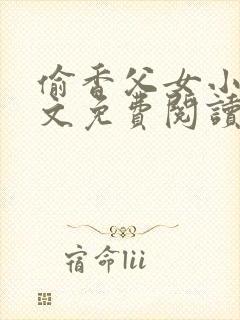 偷香父女小
文免費閱讀
宿命lii